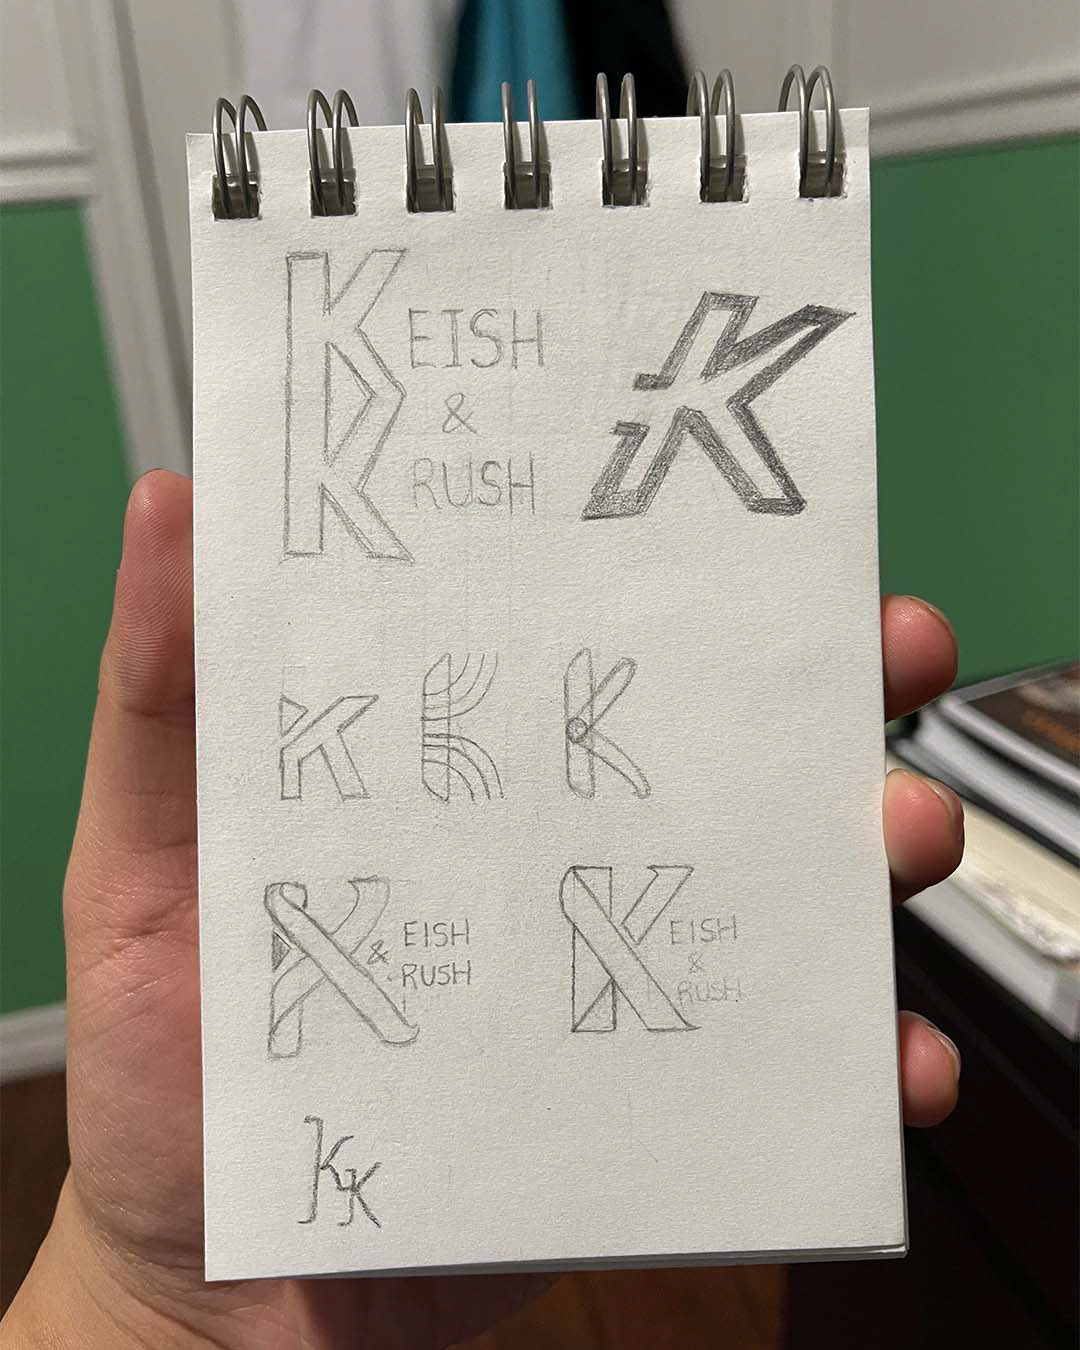 KEISH
&
KRUSH
K
K K K
K EISH
& RUSH
K EISH
&
RUSH
KK